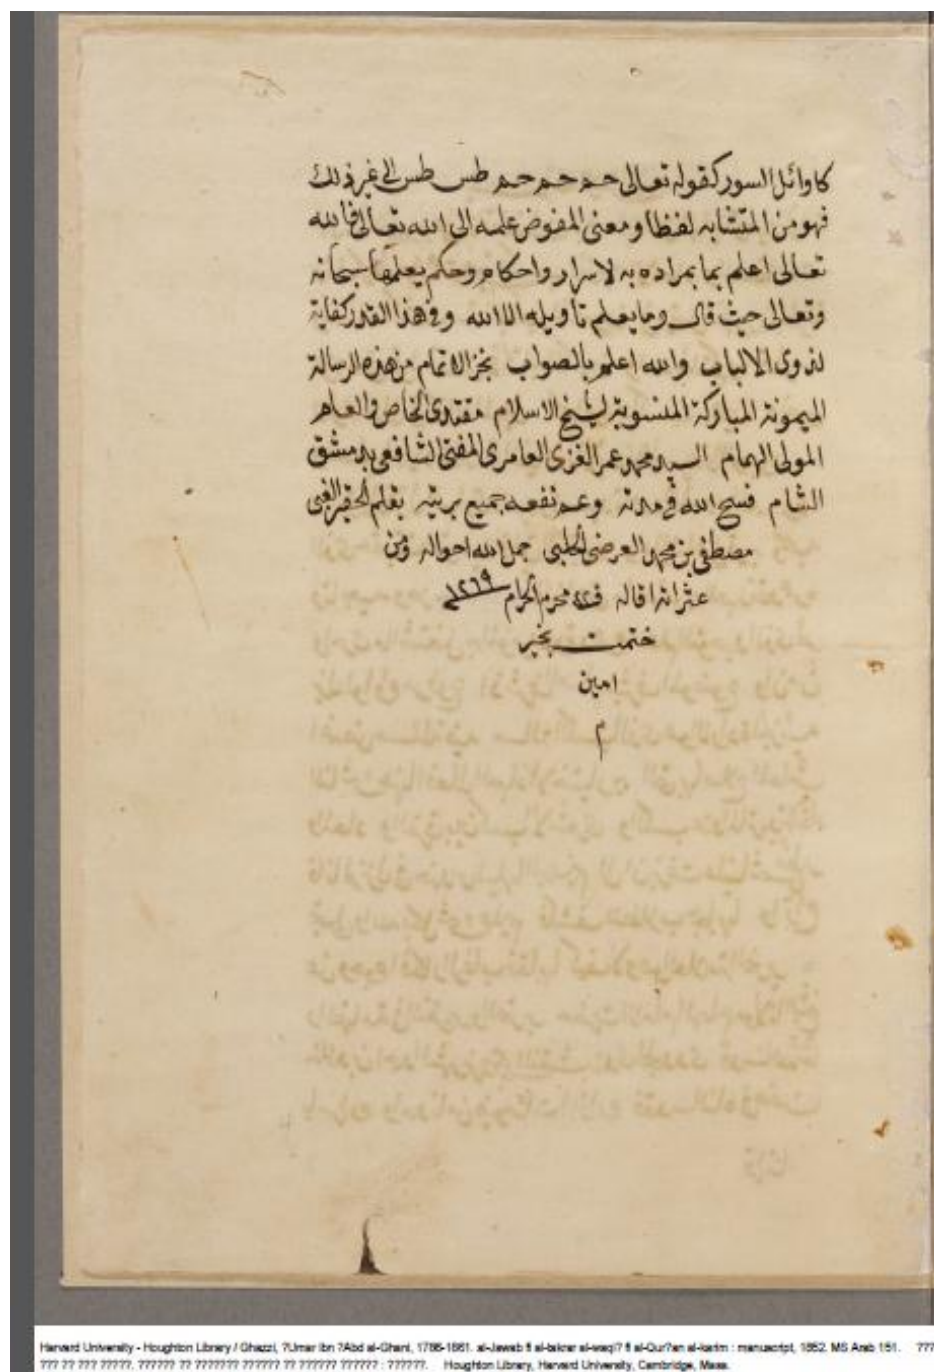 كاوائل السور كقوله تعالى حم حم حم طس طس الى غير ذلك
فهو من المتشابه لفظا ومعنى المفوض علمه الى الله تعالى فالله
تعالى اعلم بما بمراده به لاسرار واحكام وحكم يعلمها سبحانه
وتعالى حيث قال وما يعلم تاويله الا الله وفي هذا القدر كفاية
لذوى الالباب والله اعلم بالصواب نجز الاتمام من هذه الرسالة
الميمونة المباركة المنسوبة لشيخ الاسلام مقتدى الخاص والعام
المولى الهمام السيد محمد عمر الغزى العامرى المفتى الشافعى بدمشق
الشام فسح الله في مدته وعم نفعه جميع بريته بقلم الحقير الغبى
مصطفى بن محمد العرضى الحلبى جمل الله احواله ومن
عثراته اقاله في محرم الحرام ١٢٦٩
ختمت بخير
امين
م
Harvard University - Houghton Library / Ghazzi, ?Umar ibn ?Abd al-Ghani, 1786-1861. al-Jawab fi al-takrar al-waqi? fi al-Qur?an al-karim : manuscript, 1852. MS Arab 151. ???
??? ?? ??? ?????. ?????? ?? ??????? ?????? ?? ?????? ?????? : ??????. Houghton Library, Harvard University, Cambridge, Mass.